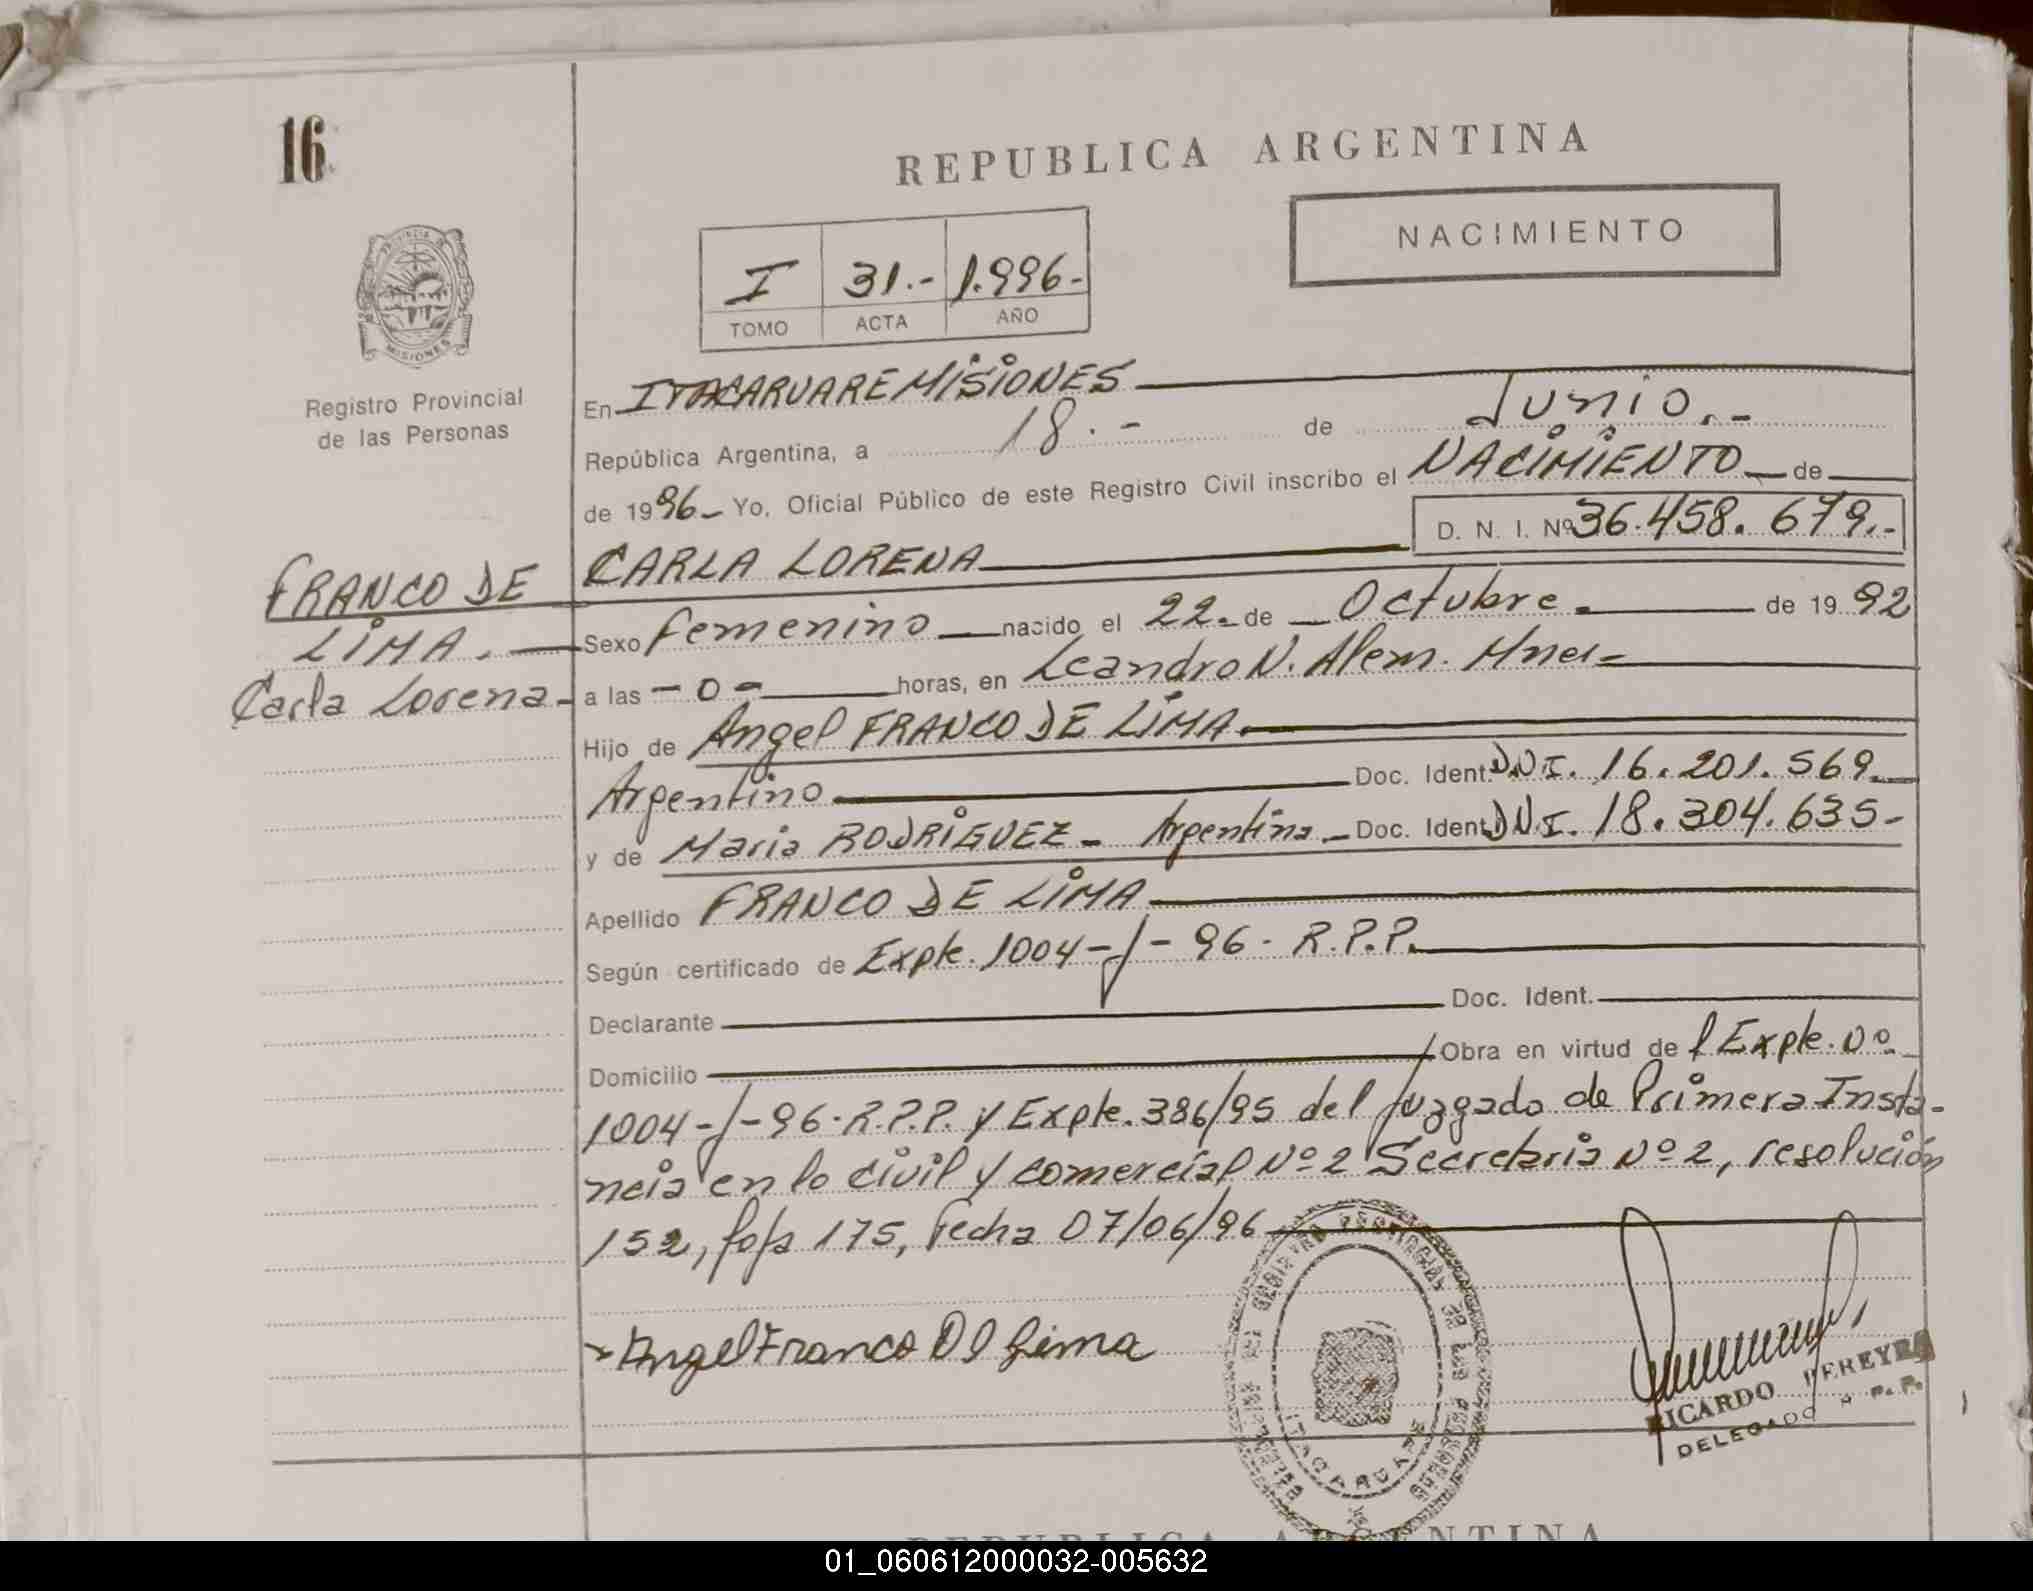 16
REPUBLICA ARGENTINA
NACIMIENTO
I 31.- 1.996-
TOMO ACTA AÑO
PROVINCIA DE
MISIONES
Registro Provincial
de las Personas
En ITACARUARE MISIONES
República Argentina, a 18.- de Junio.-
de 1996- Yo, Oficial Público de este Registro Civil inscribo el NACIMIENTO de
D. N. I. Nº 36.458.679.-
FRANCO DE
LIMA.
Carla Lorena-
CARLA LORENA
Sexo Femenino nacido el 22. de Octubre. de 1992
a las -0- horas, en Leandro N. Alem. Mnes-
Hijo de Angel FRANCO DE LIMA.
Argentino Doc. Ident. D.N.I. 16.201.569.
y de Maria RODRIGUEZ- Argentina- Doc. Ident. D.N.I. 18.304.635-
Apellido FRANCO DE LIMA
Según certificado de Expte. 1004-J-96- R.P.P.
Declarante Doc. Ident.
Domicilio Obra en virtud del Expte. Nº
1004-J-96-R.P.P. y Expte. 386/95 del Juzgado de Primera Insta-
ncia en lo civil y comercial Nº 2 Secretaria Nº 2, resolución
152, foja 175, Fecha 07/06/96
Angel Franco De Lima
ITACARUARE
RICARDO PEREYRA
DELEGADO R. P. P.
REPUBLICA ARGENTINA
01_060612000032-005632